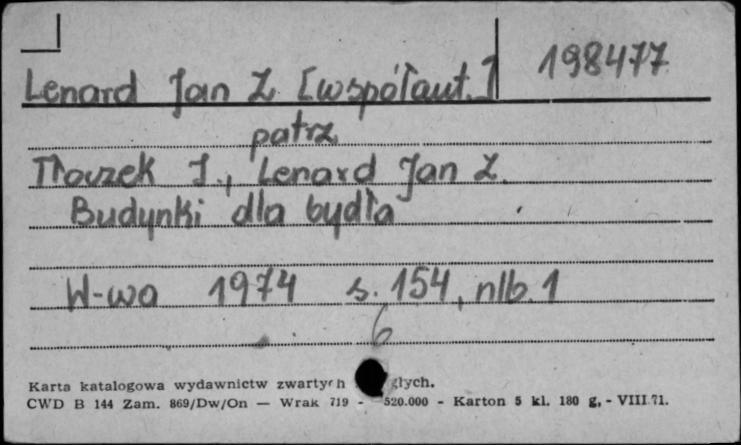 Lenard Jan Z [współaut.] 198477
patrz
Tłoczek I., Lenard Jan Z.
Budynki dla bydła
W-wa 1974 s. 154, nlb. 1
6
Karta katalogowa wydawnictw zwartych głych.
CWD B 144 Zam. 869/Dw/On — Wrak 719 - 520.000 - Karton 5 kl. 180 g, - VIII 71.